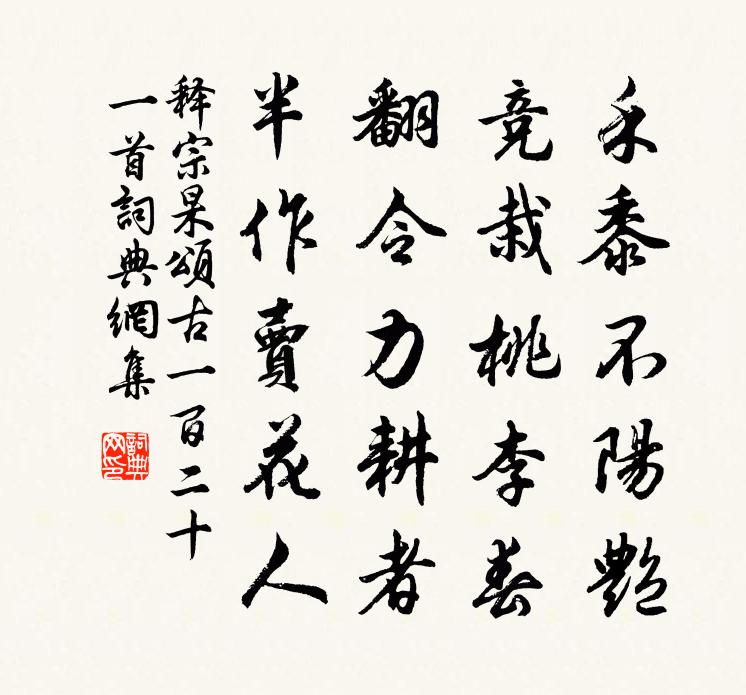 禾黍不陽艷
竞栽桃李春
翻令力耕者
半作賣花人
释宗杲頌古一百二十
一首詞典網集
詞典网印